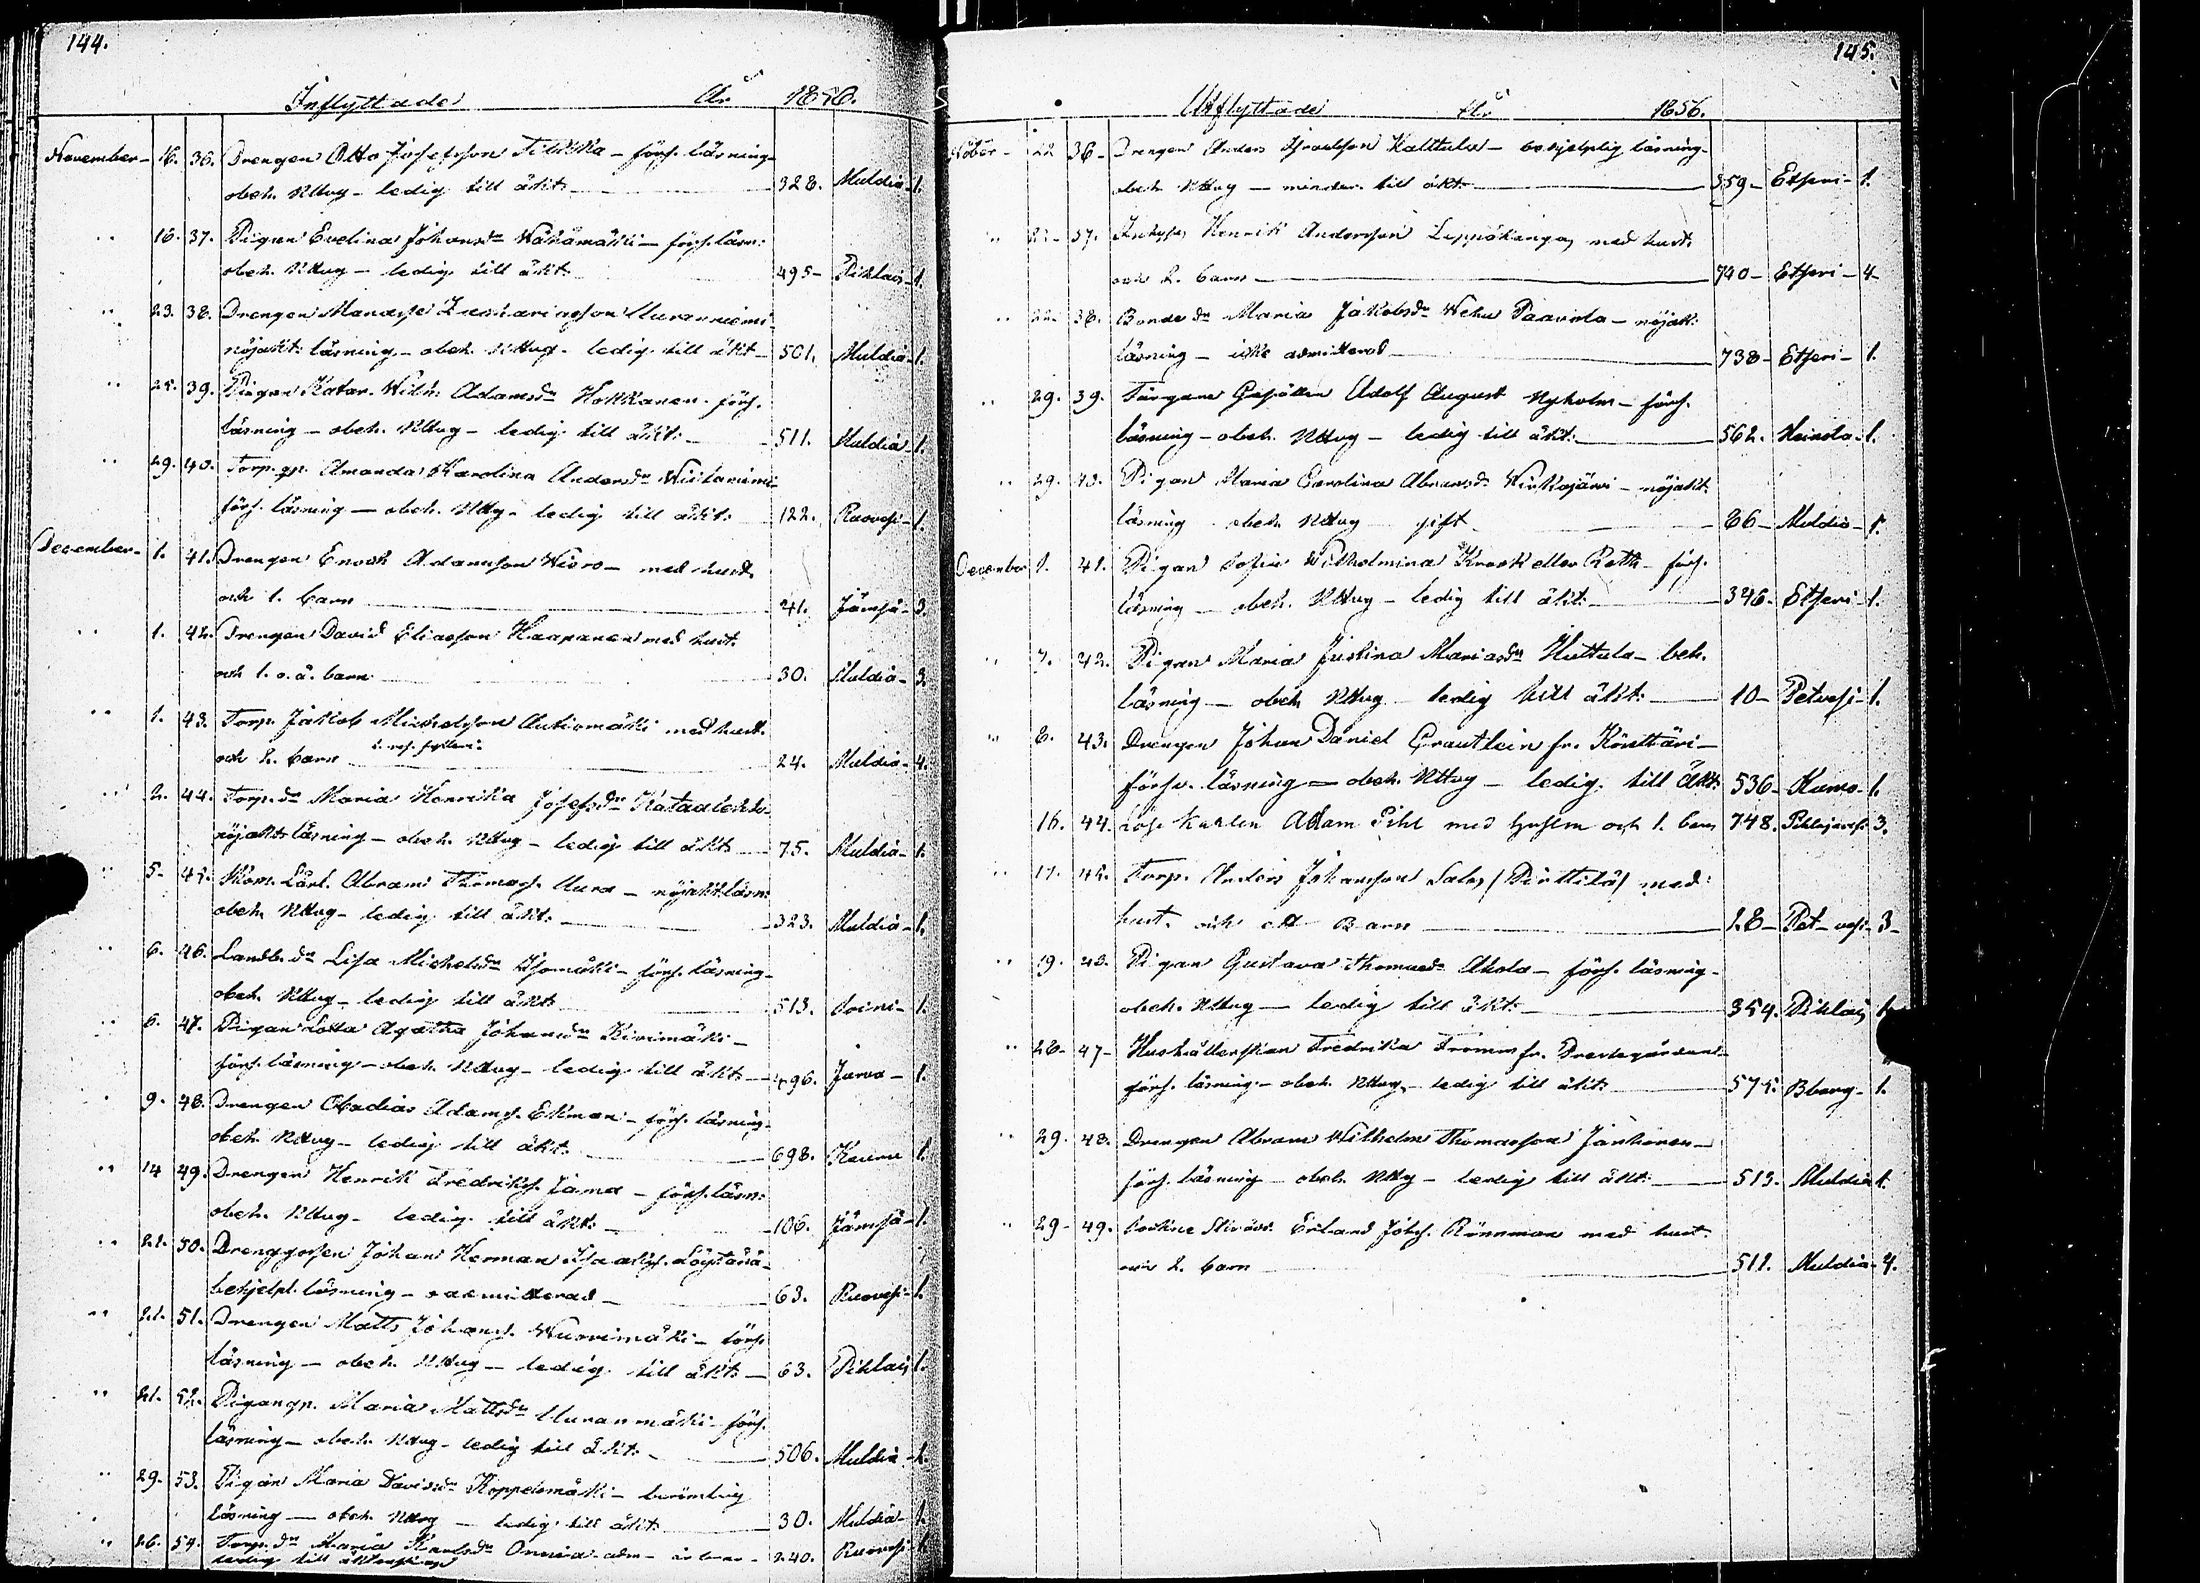 144.
Inflyttade År 1856.
November - 16. 36. Drengen Otto Josefsson Tikkka - förs. läsning
obeh. Nttvg - ledig till äkt. 328. Muldia - 1.
" 16. 37. Pigan Evelina Johansdr Wähämäki - förs. läsn:
obeh. Nttvg - ledig till äkt. 495 - Pihlais - 1.
" 23. 38. Drengen Manasse Zachariasson Uuranniemi
nöjakt: läsning - obeh. Nttvg - ledig till äkt - 501. Muldia - 1.
" 25. 39. Pigan Katar. Wilh: Adamsdr Hokkanen - förs.
läsning - obeh. Nttvg - ledig till äkt: 511. Muldia - 1.
" 29. 40. Torp. gr. Amanda Karolina Andersdr
förs. läsning - obeh. Nttvg - ledig till äkt: 122. Ruovesi - 1.
December - 1. 41. Drengen Enoch Adamsson - med hust.
och 1. barn 41. Jämsä - 3.
" 1. 42. Drengen David Eliasson Haapanen med hust.
och 1. o. ä. barn 30. Muldia - 3.
" 1. 43. Torp. Jakob Michelsson Autiomäki med hust.
och 2. barn 24. Muldia - 4.
" 2. 44. Torp. dr Maria Henrika Josefsdr
nöjakt läsning - obeh. Nttvg - ledig till äkt 75. Muldia - 1.
" 5. 45. Abram Thomass. Uura - nöjakt läsn:
obeh. Nttvg - ledig till äkt. 323. Muldia - 1.
" 6. 46. Landb. dr Lisa Michelsdr Isomäki - förs. läsning -
obeh. Nttvg - ledig till äkt 513. Soini - 1.
" 6. 47. Pigan Lotta Agatha Johansdr Kivimäki -
förs. läsning - obeh. Nttvg - ledig till äkt - 496. - 1.
" 9. 48. Drengen Obadias Adams. Ekman - förs. läsning -
obeh. Nttvg - ledig till äkt. 698. 1.
" 14 49. Drengen Henrik Fredriks. - förs. läsn:
obeh. Nttvg - ledig till äkt. 106. Jämsä - 1.
" 21. 50. Drenggossen Johan Herman
behjelpl. läsning - oadmitterad - 63. Ruovesi - 1.
" 21. 51. Drengen Matts Johans. Wuorimäki - förs
läsning - obeh. Nttvg - ledig till äkt: - 63. Pihlais 1.
" 21. 52. Maria Mattsdr - förs.
läsning - obeh. Nttvg - ledig till äkt. 506. Muldia - 1.
" 29. 53. Pigan Maria Davidsdr Koppelomäki - berömlig
läsning - obeh. Nttvg - ledig till äkt 30. Muldia - 1.
" 26. 54. Torp. dr Maria Karlsdr - adm - 240. Ruovesi - 1.
ledig till äktenskap
145.
Utflyttade År 1856.
Nober - 22 36 - Drengen Anders - behjelplig läsning -
obeh. Nttvg - hinder till äkt 359 - Etseri - 1.
" 37. Inhyses Henrik Andersson Leppäkangas med hust.
och 2. barn 740 - Etseri - 4
" 22. 38. Bonde dr Maria Jakobsdr Wehu Paavola - nöjakt:
läsning - icke admitterad 738 - Etseri - 1.
" 29. 39. Färgare Gesällen Adolf August Nyholm - förs.
läsning - obeh. Nttvg - ledig till äkt: 562. Heinola - 1.
" 29. 40. Pigan Maria Carolina Abramsdr - nöjakt
läsning obeh. Nttvg gift 86 - Muldia - 1.
December 1. 41. Pigan Sofia Wilhelmina eller - förs.
läsning - obeh. Nttvg - ledig till äkt. 346. Etseri - 1.
" 7. 42. Pigan Maria Justina Mariasdr Huttula - beh.
läsning - obeh Nttvg ledig till äkt: 10 - Petvesi - 1.
" 8. 43. Drengen Johan Daniel fr. Könttäri -
försv. läsning - obeh. Nttvg - ledig till äkt: 536 - - 1.
16. 44. Adam Pihl med hustru och 1. barn 748. 3.
" 17. 45. Torp. Anders Johansson / Pirttilä / med
hust. och ett Barn 18 - Pet-vesi - 3 -
" 19. 46. Pigan Gustava Thomasdr Ahola - förs. läsning -
obeh. Nttvg - ledig till äkt: 354. Pihlais 1.
" 28 - 47 - Hushållerskan Fredrika fr. Prestegården -
förs. läsning - obeh. Nttvg - ledig till äkt: 575. Bborg - 1.
" 29. 48. Drengen Abram Wilhelm Thomasson -
förs. läsning - obeh. Nttvg - ledig till äkt: 513. Muldia 1.
" 29 - 49. Erland Johs. Rönnman med hust.
och 2. barn 511. Muldia - 4.